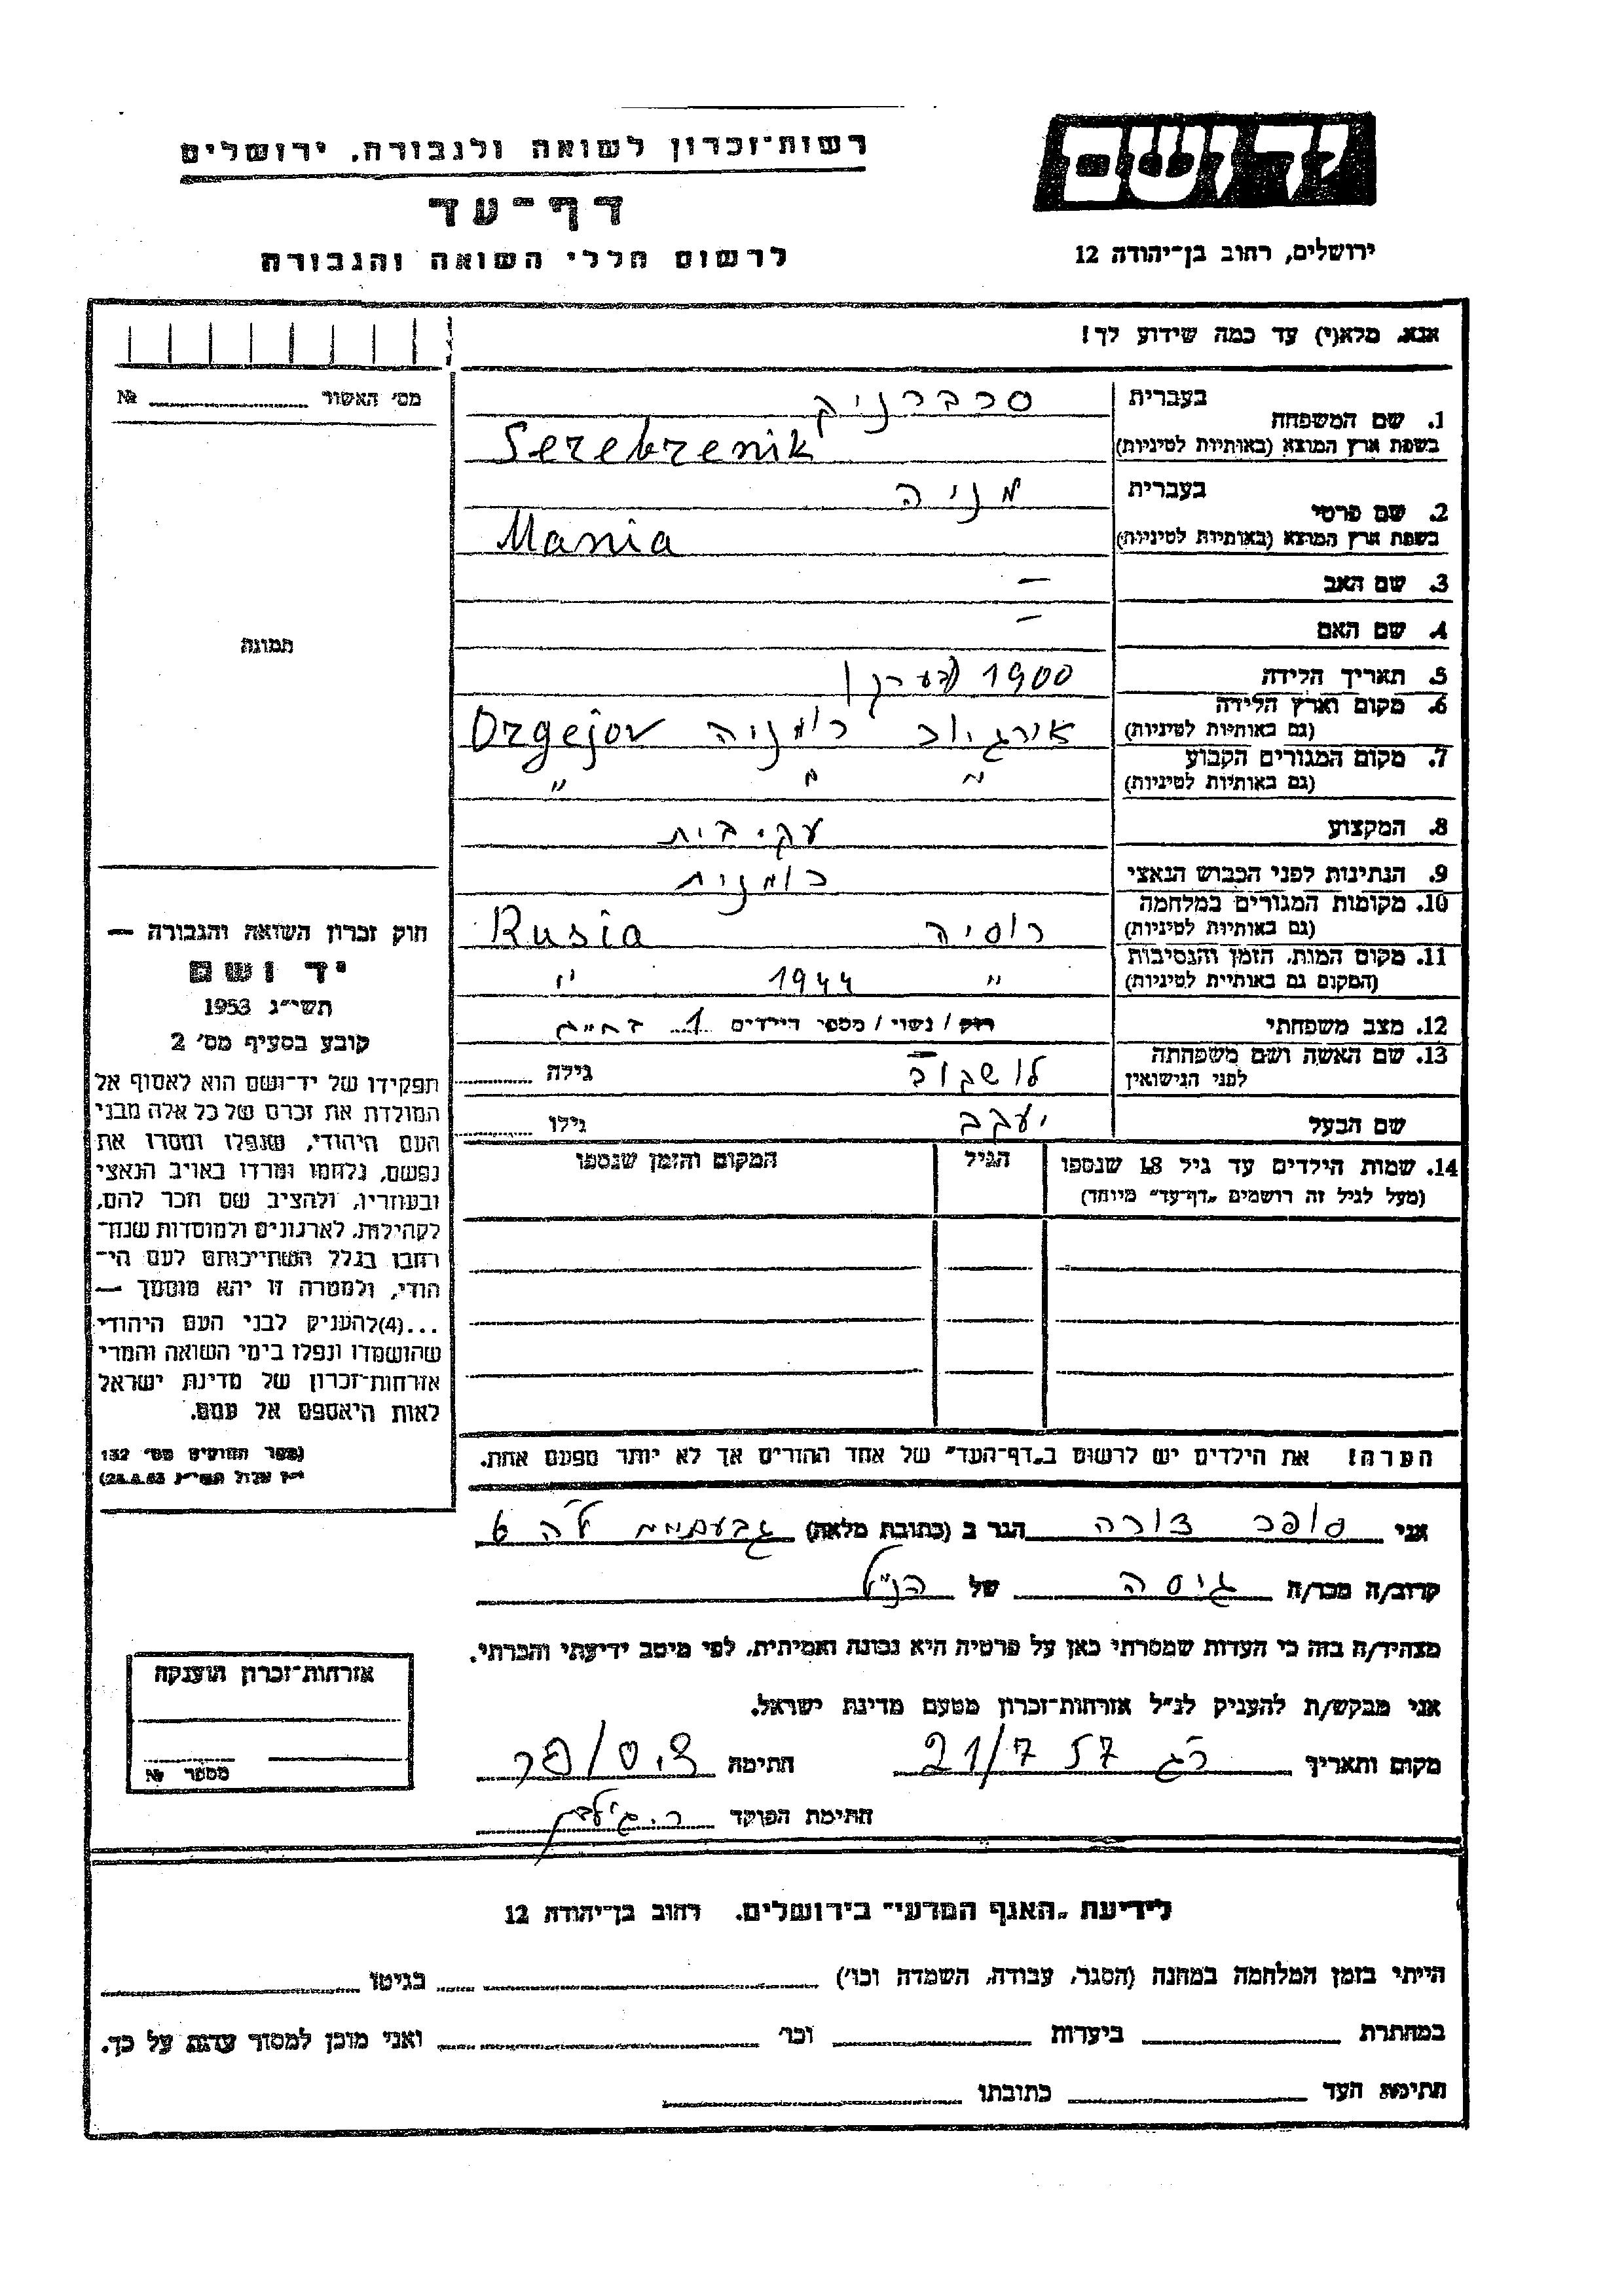 רשות-זכרון לשואה ולגבורה, ירושלים
יד ושם
דף-עד
לרשום חללי השואה והגבורה
ירושלים, רחוב בן-יהודה 12
אנא, מלא(י) עד כמה שידוע לך!
מס׳ האשור № 
1. שם המשפחה בעברית סרברניק
בשפת ארץ המוצא (באותיות לטיניות) Serebrenik
2. שם פרטי בעברית מניה
בשפת ארץ המוצא (באותיות לטיניות) Mania
3. שם האב –
4. שם האם –
תמונה
5. תאריך הלידה 1900 (בערך)
6. מקום וארץ הלידה (גם באותיות לטיניות) אורגיוב רומניה Orgejov
7. מקום המגורים הקבוע (גם באותיות לטיניות) " " "
8. המקצוע עק. בית
9. הנתינות לפני הכבוש הנאצי רומנית
10. מקומות המגורים במלחמה (גם באותיות לטיניות) רוסיה Rusia
11. מקום המות, הזמן והנסיבות (המקום גם באותיות לטיניות) " 1944 "
12. מצב משפחתי רוק / נשוי / מספר הילדים 1
13. שם האשה ושם משפחתה לפני הנישואין גילה
שם הבעל יעקב גילו
14. שמות הילדים עד גיל 18 שנספו (מעל לגיל זה רושמים „דף-עד" מיוחד)
הגיל
המקום והזמן שנספו
חוק זכרון השואה והגבורה —
יד ושם
תשי״ג 1953
קובע בסעיף מס׳ 2
תפקידו של יד-ושם הוא לאסוף אל
המולדת את זכרם של כל אלה מבני
העם היהודי, שנפלו ומסרו את
נפשם, נלחמו ומרדו באויב הנאצי
ובעוזריו, ולהציב שם וזכר להם,
לקהילות, לארגונים ולמוסדות שנח-
רבו בגלל השתייכותם לעם הי-
הודי, ולמטרה זו יהא מוסמך —
...(4)להעניק לבני העם היהודי
שהושמדו ונפלו בימי השואה והמרי
אזרחות-זכרון של מדינת ישראל
לאות היאספם אל עמם.
(ספר החוקים מס׳ 132
י״ז אלול תשי״ג 28.8.53)
הערה! את הילדים יש לרשום ב„דף-העד" של אחד ההורים אך לא יותר מפעם אחת.
אני סופר צורה הגר ב (כתובת מלאה) גבעתיים
קרוב/ה מכר/ה גיסה של הנ״ל
מצהיר/ה בזה כי העדות שמסרתי כאן על פרטיה היא נכונה ואמיתית, לפי מיטב ידיעתי והכרתי.
אני מבקש/ת להעניק לנ״ל אזרחות-זכרון מטעם מדינת ישראל.
מקום ותאריך ר״ג 21/7 57 חתימה צ. סופר
חתימת הפוקד
אזרחות-זכרון הוענקה
מספר №
לידיעת „האגף המדעי" בירושלים. רחוב בן-יהודה 12
הייתי בזמן המלחמה במחנה (הסגר, עבודה, השמדה וכו׳) בגיטו
במחתרת ביערות וכו׳ ואני מוכן למסור עדות על כך.
חתימת העד כתובתו